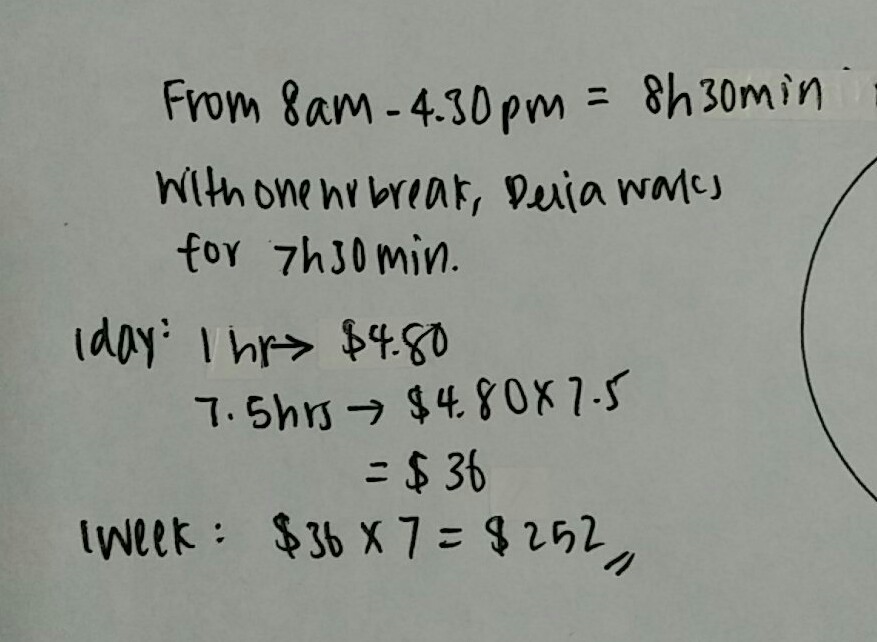 From 8am - 4.30pm = 8h30min
With one hr break, Delia works
for 7h30min.
1day: 1hr→ $4.80
7.5hrs → $4.80x7.5
= $36
1week: $36 x 7 = $252